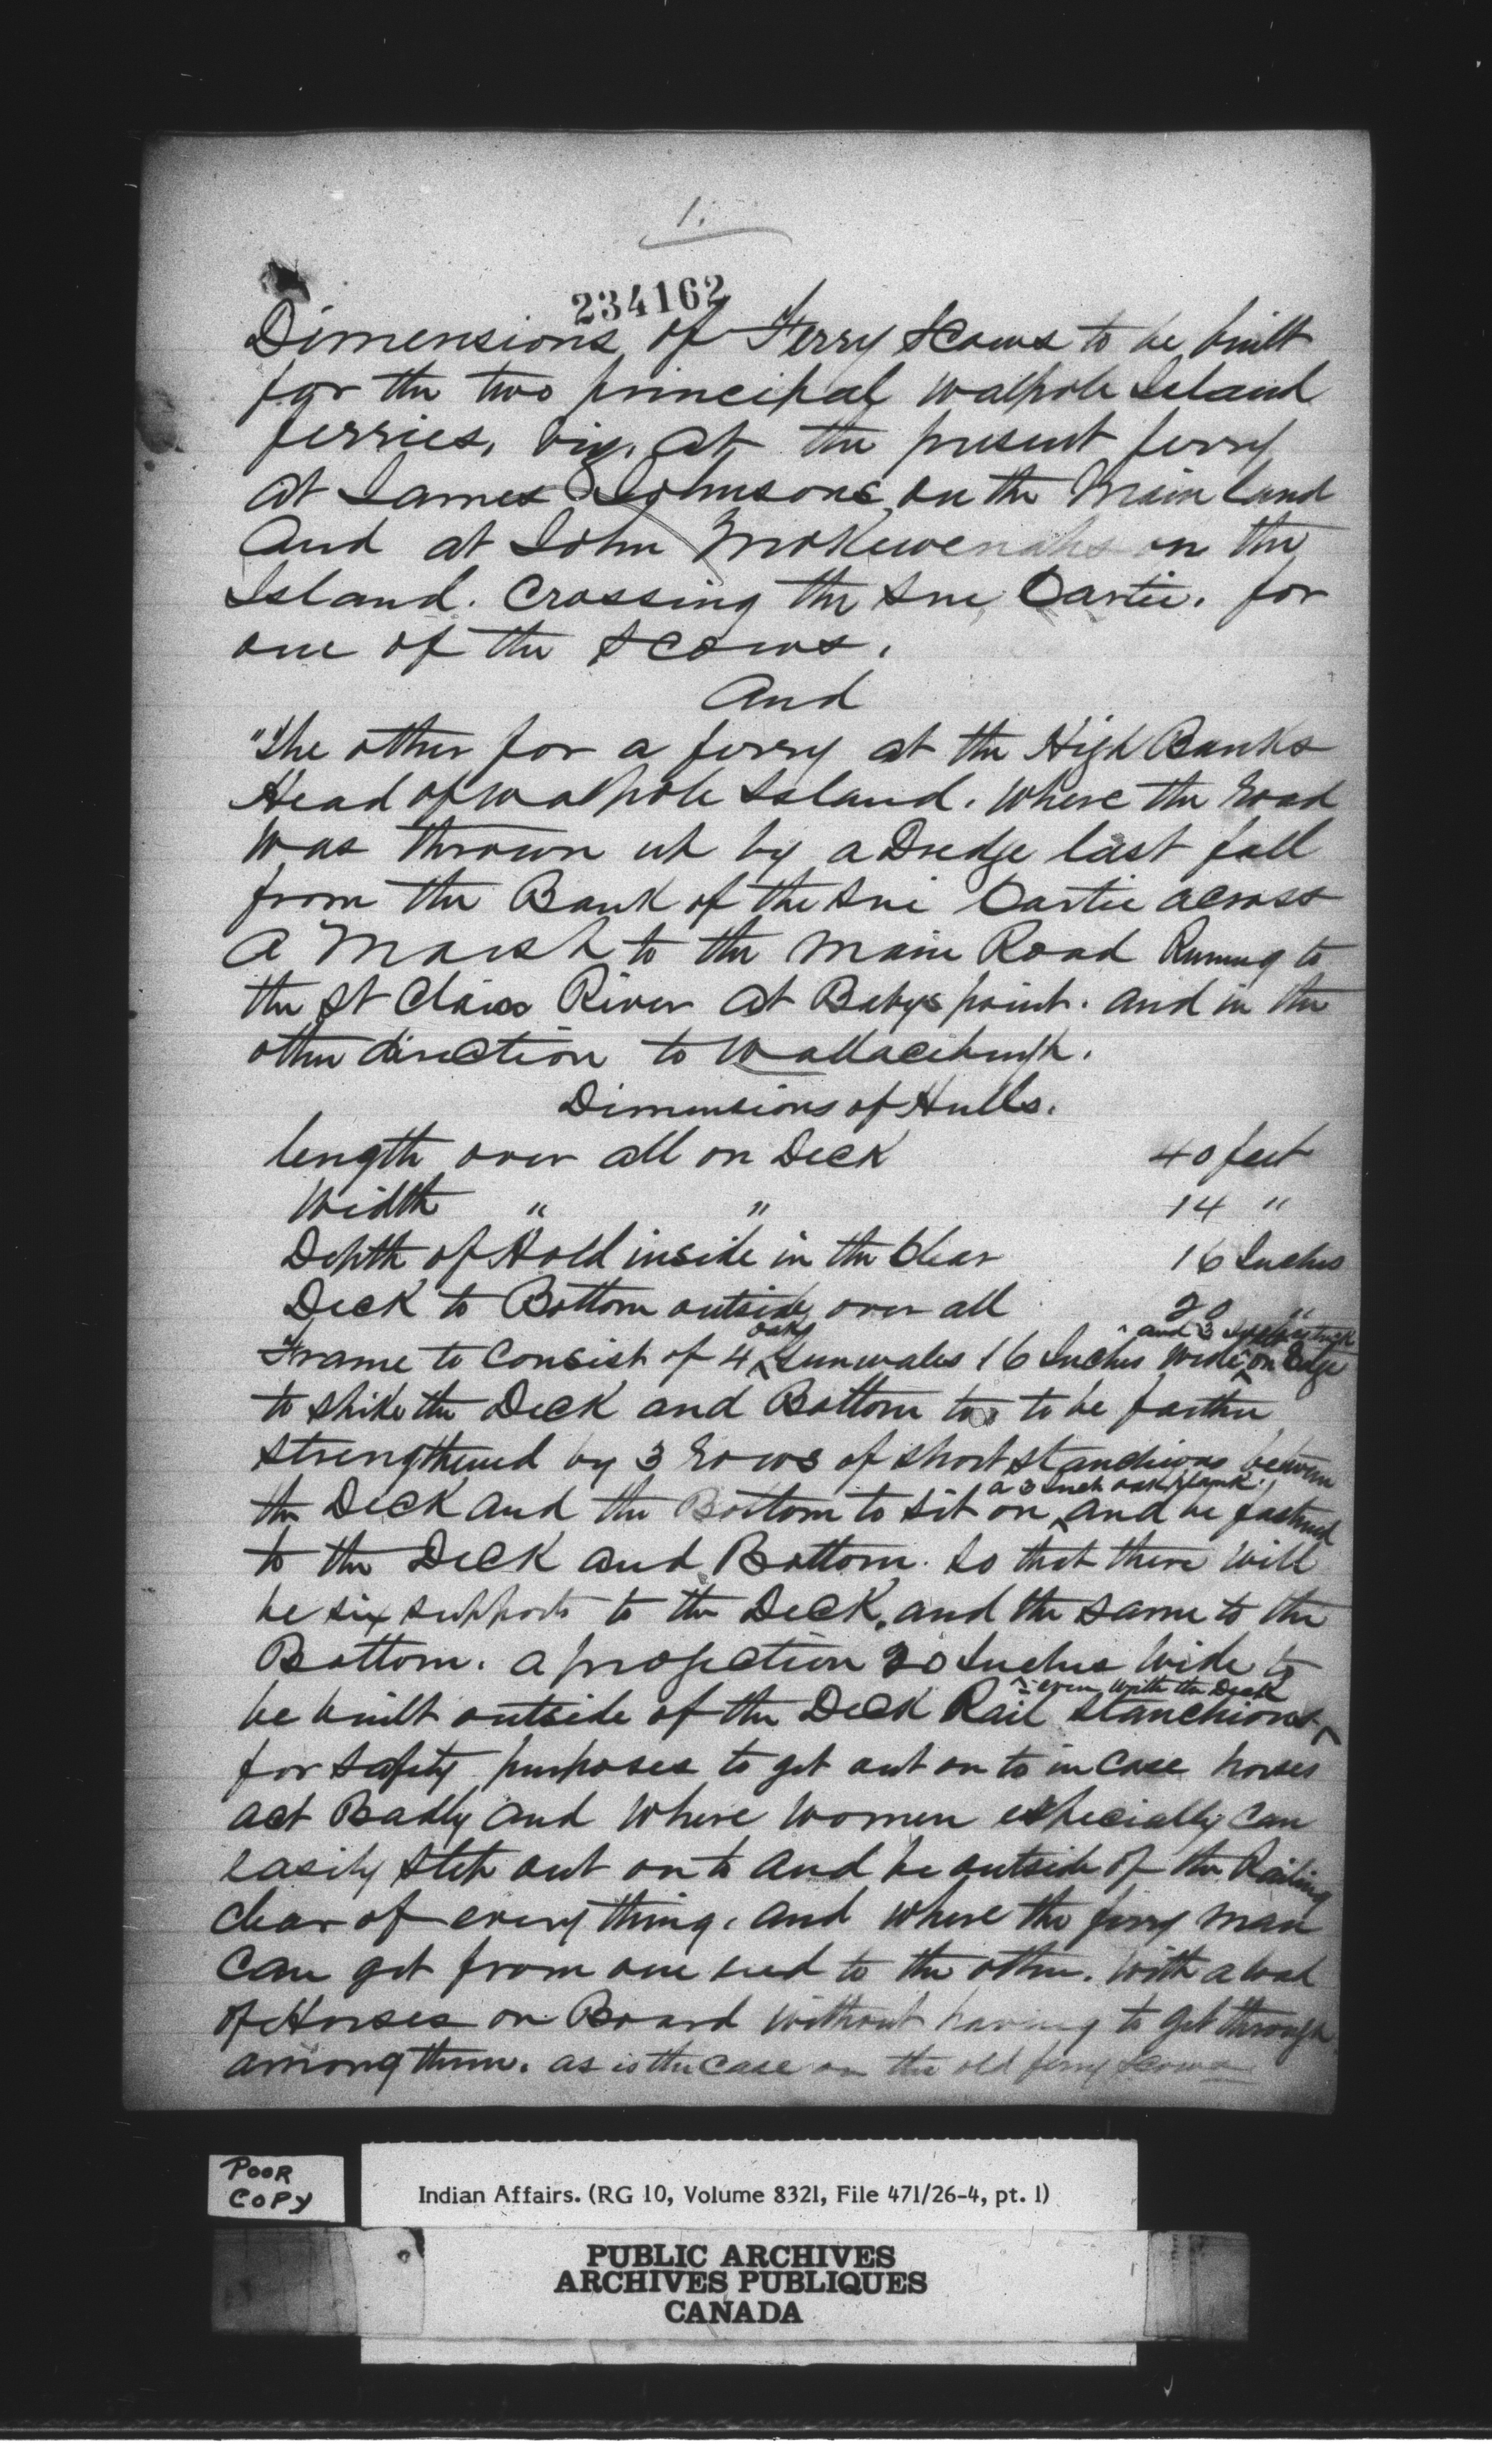 1.
234162
Dimensions of Ferry Scows to be built
for the two principal Walpole Island
ferries, viz. at the present ferry
at James Johnsons on the Main land
And at John on the
Island. Crossing the Sne Cartie. for
one of the Scows.
And
"The other for a ferry at the High Banks
Head of Walpole Island. Where the Road
was thrown up by a Dredge last fall
from the Bank of the Sni Cartie across
A Marsh to the Main Road Runing to
the St Clair River at Babys point. and in the
other direction to Wallaceburgh.
Dimensions of Hulls.
length over all on Deck 40 feet
Width " " 14 "
Depth of Hold inside in the Clear 16 Inches
Deck to Bottom outside over all 20 "
oak and 3 Inches thick
Frame to Consist of 4 Gunwales 16 Inches wide on Edge
to spike the Deck and Bottom to to be farther
strengthened by 3 Rows of short stanchions between
a 3 Inch oak plank
the Deck and the Bottom to sit on and be fastned
to the Deck and Bottom. so that there will
be six supports to the Deck, and the same to the
Bottom. a projection 20 Inches wide to
even with the Deck
be built outside of the Deck Rail Stanchions
for safety purposes to get out on to in Case horses
act Badly and Where Women especially Can
easily step out on to and be outside of the Railing
clear of every thing. and where the ferry man
Can get from one end to the other. With a load
of Horses on Board without having to get through
among them. as is the Case on the old ferry Scows
POOR
COPY
Indian Affairs. (RG 10, Volume 8321, File 471/26-4, pt. 1)
PUBLIC ARCHIVES
ARCHIVES PUBLIQUES
CANADA